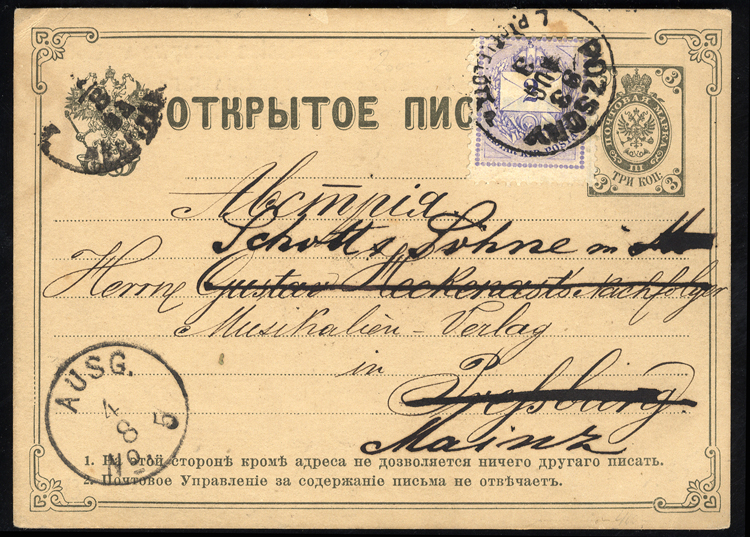 ОТКРЫТОЕ ПИС
3
ПОЧТОВАЯ МАРКА
III
3 ТРИ КОП. 3
POZSONY
83
AUG
3
Австрія.
Schotts Söhne in M
Herrne Gustav Heckenast's Nachfolger
Musikalien-Verlag
in
Preßburg
Mainz
AUSG.
4
8
No. 5
1. На этой сторонѣ кромѣ адреса не дозволяется ничего другаго писать.
2. Почтовое Управленіе за содержаніе письма не отвѣчаетъ.